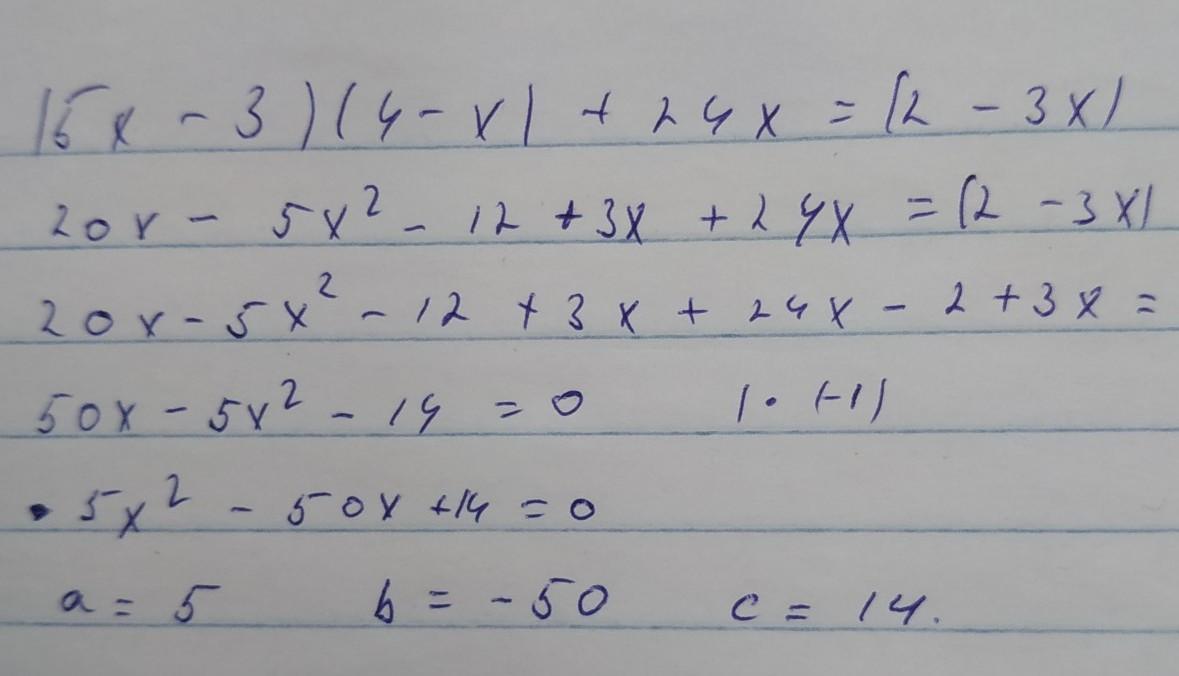 (5x - 3)(4 - x) + 24x = (2 - 3x)
20x - 5x² - 12 + 3x + 24x = (2 - 3x)
20x - 5x² - 12 + 3x + 24x - 2 + 3x =
50x - 5x² - 14 = 0 | · (-1)
• 5x² - 50x + 14 = 0
a = 5 b = -50 c = 14.